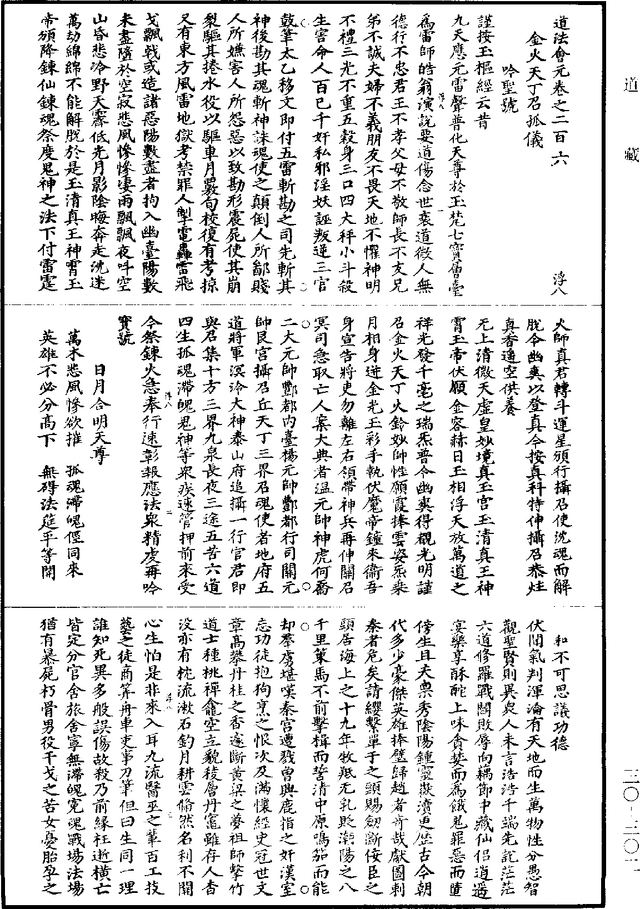 道藏
三〇-三〇二
道法會元卷之二百六 浮八
金火天丁召孤儀
吟聖號
謹按玉樞經云昔
九天應元雷聲普化天尊於玉梵七寶層臺
為雷師皓翁演說要道傷念世衰道微人無
德行不忠君王不孝父母不敬師長不友兄
弟不誠夫婦不義朋友不畏天地不懼神明
不禮三光不重五穀身三口四大秤小斗殺
生害命人百已千奸私邪淫妖誣叛逆三官
鼓筆太乙移文即付五雷斬勘之司先斬其
神後勘其魂斬神誅魂使之顛倒人所鄙賤
人所嫌害人所怨惡以致勘形震屍使其崩
裂驅其捲水役以驅車月覈旬校復有考掠
又有東方風雷地獄考禁罪人掣電轟雷飛
戈飄戟或造諸惡陽數盡者拘入幽臺陽數
未盡隨於空寂悲風慘慘淒雨飄飄夜叫空
山昏悲冷野天霧低光月影陰晦奔走沈迷
萬劫綿綿不能解脫於是玉清真王神霄玉
帝頒降鍊仙鍊魂祭度鬼神之法下付雷霆
火師真君轉斗運星頒行攝召使沈魂而解
脫令幽爽以登真今按真科特伸攝召恭炷
真香遙空供養
元上清微天虛皇妙境真王宮玉清真王神
霄玉帝伏願金容赫日玉相浮天放萬道之
祥光發千毫之瑞炁普令幽爽得覩光明謹
召金火天丁火鈴妙帥性願霞捧雲姿炁乘
月相身迸金光玉彩手執伏魔帝鍾來衞吾
身宣告將吏勿離左右領帶神兵再伸關召
冥司急取亡人案大典者溫元帥神虎何喬
二大元帥酆都內臺楊元帥酆都行司關元
帥艮宮攝召丘天丁三界召魂使者地府五
道將軍溟泠大神泰山府追攝一行官君即
與召集十方三界九泉長夜三途五苦六道
四生孤魂滯魄鬼神等衆疾速管押前來受
令祭鍊火急奉行速彰報應法衆精虔再吟
寶號
日月合明天尊
萬木悲風慘欲摧 孤魂滯魄俓同來
英雄不必分高下 無碍法筵平等開
和不可思議功德
伏聞氣判渾淪有天地而生萬物性分愚智
觀聖賢則異衆人未言浩浩千端先說茫茫
六道修羅戰鬪敗辱向藕節中藏仙侣逍遥
宴樂享酥酡上味貪婪而為餓鬼罪惡而匱
傍生且夫奧秀陰陽鍾靈嶽瀆更歷古今朝
代多少豪傑英雄捧璧歸趙者奇哉獻圖刺
秦者危矣請纓繫單于之頸賜劒斷佞臣之
頭居海上之十九年牧羝无乳貶潮陽之八
千里策馬不前擊楫而誓清中原鳴笳而能
却羣虜堪嘆秦宮遭殘曾與鹿指之奸漢室
忘功徒抱狗烹之恨次及滿懷經史冠世文
章高攀丹桂之香遂斷黄梁之夢祖師擊竹
道士種桃禪龕空立貌稜層丹竈雖存人杳
没亦有枕流漱石釣月耕雲翛然名利不關
心生怕是非來入耳九流醫巫之輩百工技
藝之徒商筭舟車吏事刀筆但曰生同一理
誰知死異多般誤傷故殺乃前緣枉逝橫亡
皆定分官舍旅舍寧無滯魄寃魂戰場法場
猶有暴屍朽骨男役干戈之苦女憂胎孕之